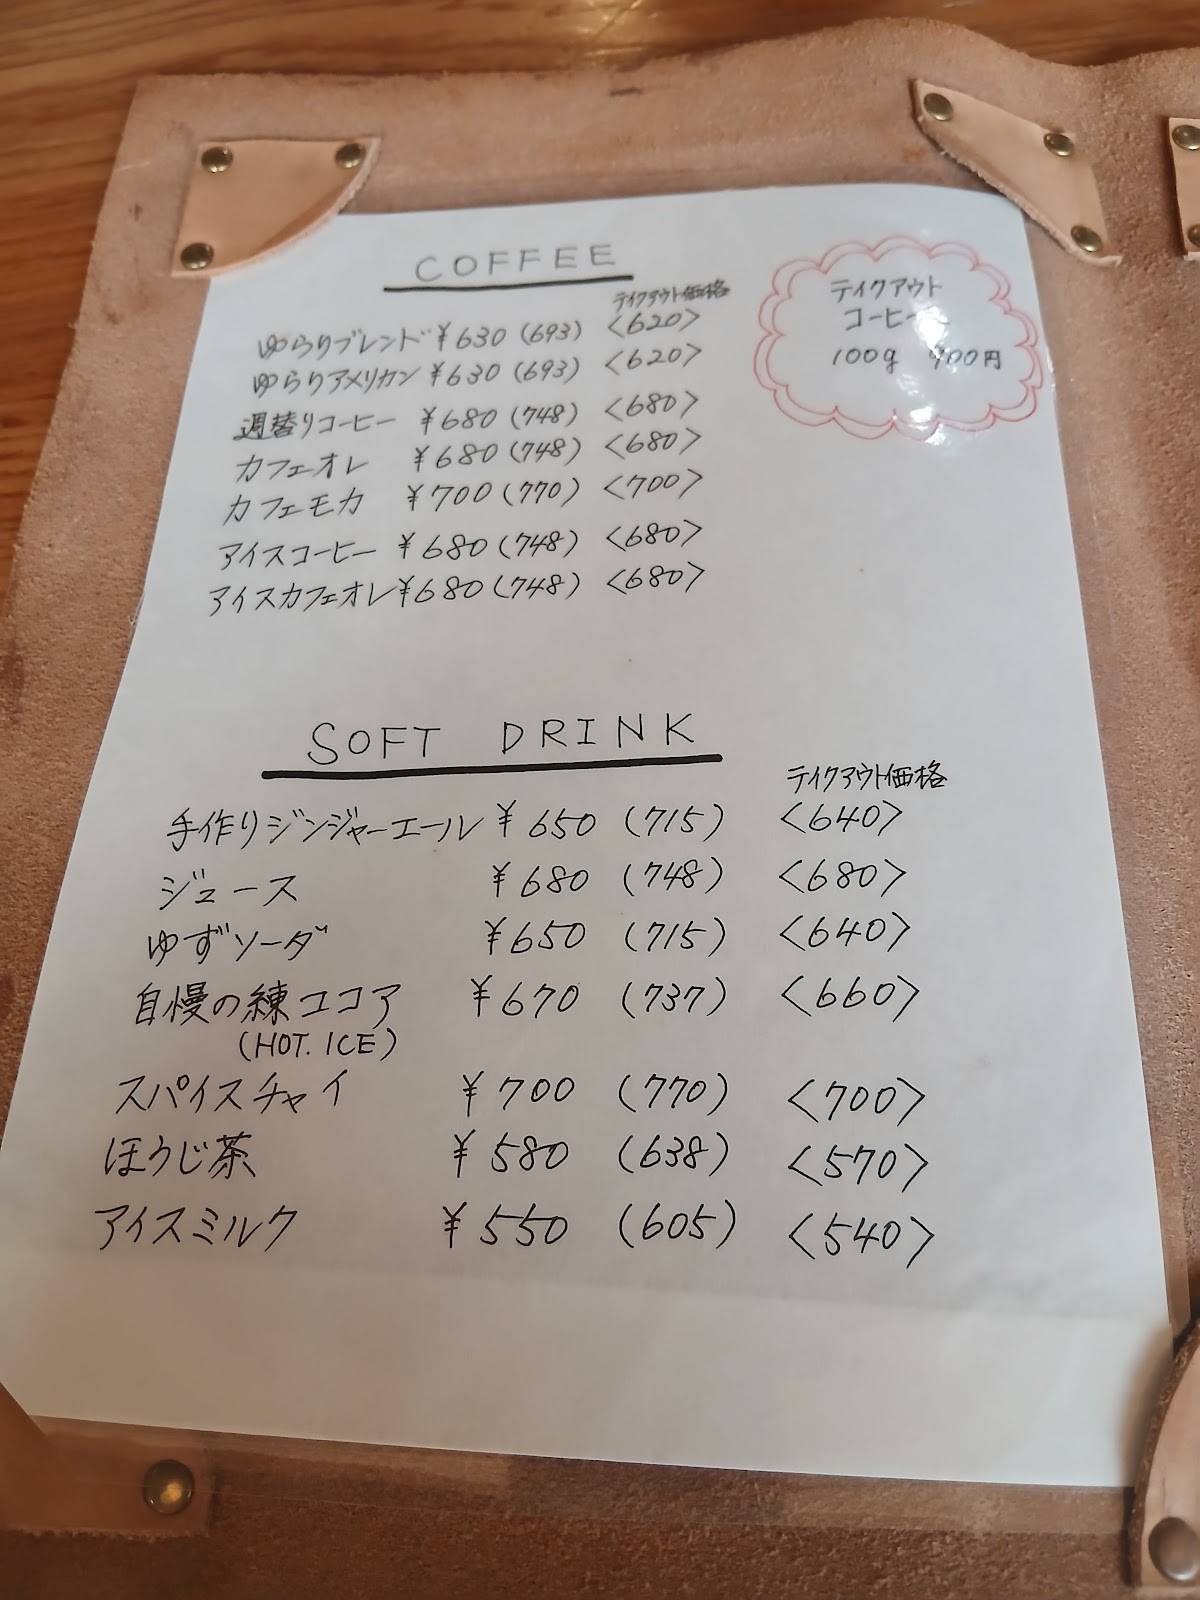 COFFEE
テイクアウト価格
ゆらりブレンド ¥630 (693) <620>
ゆらりアメリカン ¥630 (693) <620>
週替りコーヒー ¥680 (748) <680>
カフェオレ ¥680 (748) <680>
カフェモカ ¥700 (770) <700>
アイスコーヒー ¥680 (748) <680>
アイスカフェオレ ¥680 (748) <680>
テイクアウト
コーヒー
100g 900円
SOFT DRINK
テイクアウト価格
手作りジンジャーエール ¥650 (715) <640>
ジュース ¥680 (748) <680>
ゆずソーダ ¥650 (715) <640>
自慢の練ココア ¥670 (737) <660>
(HOT. ICE)
スパイスチャイ ¥700 (770) <700>
ほうじ茶 ¥580 (638) <570>
アイスミルク ¥550 (605) <540>